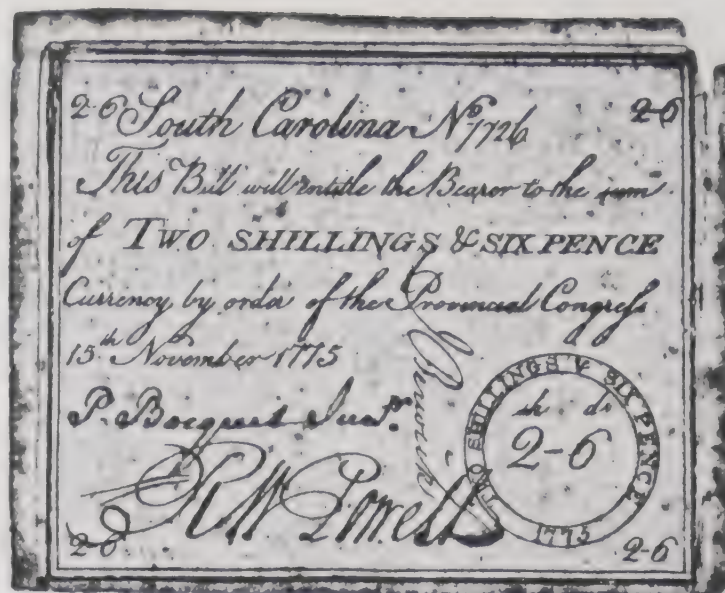 2-6 South Carolina No 1726 2-6
This Bill will entitle the Bearer to the sum
of TWO SHILLINGS & SIX PENCE
Currency by order of the Provincial Congress
15th November 1775
P. Bocquet Junr.
TWO SHILLINGS & SIX PENCE
sh d
2-6
1775
Powell
2-6 2-6